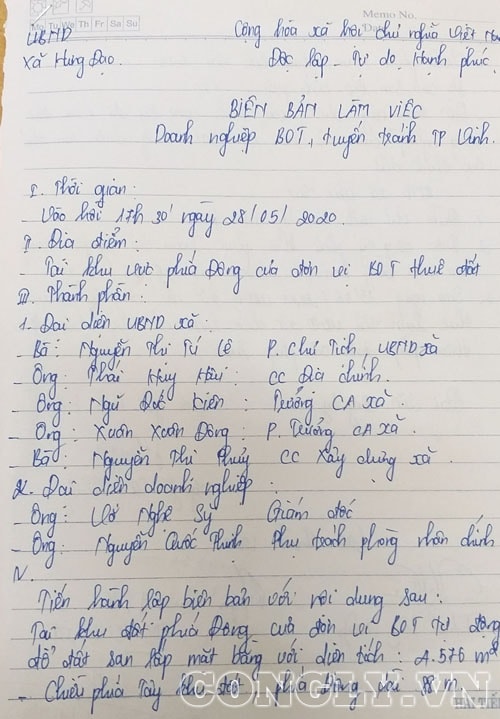 Memo No.
Mo Tu We Th Fr Sa Su
UBND Cộng hòa xã hội chủ nghĩa Việt Nam
Xã Hưng Đạo. Độc lập - Tự do Hạnh phúc.
BIÊN BẢN LÀM VIỆC
Doanh nghiệp BOT, tuyến tránh TP Vinh.
I. Thời gian:
- Vào hồi 17h 30' ngày 28/05/2020.
II. Địa điểm:
- Tại khu vực phía Đông của đơn vị BOT thuê đất
III. Thành phần:
1. Đại diện UBND xã:
- Bà: Nguyễn Thị Tú Lê P. Chủ Tịch UBND xã
- Ông: Thái Huy Hữu: CC Địa chính.
- Ông: Ngũ Đức Kiên: Trưởng CA xã.
- Ông: Xuân Đông: P. Trưởng CA xã.
- Bà: Nguyễn Thị Thủy CC Xây dựng xã.
2. Đại diện doanh nghiệp:
- Ông: Nghê Sỹ Giám đốc
- Ông: Nguyễn Quốc Thịnh Phụ trách phòng nhân chính
IV.
Tiến hành lập biên bản với nội dung sau:
Tại khu đất phía Đông của đơn vị BOT tự động
đổ đất san lấp mặt bằng với diện tích: 4.576 m²
- Chiều phía Tây khu đất phía Đông dài 88 m.
CONGLY.VN